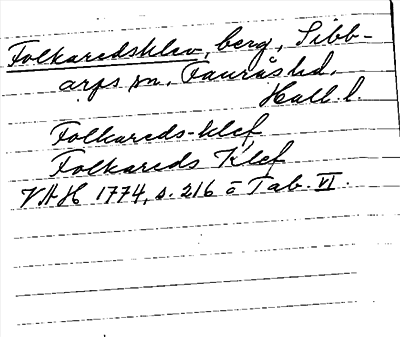 Folkaredsklev, berg, Sibb-
arps sn, Faurås hd,
Hall. l.
Folkareds-klef,
Folkareds Klef
VAH 1774, s. 216 å Tab. VI.